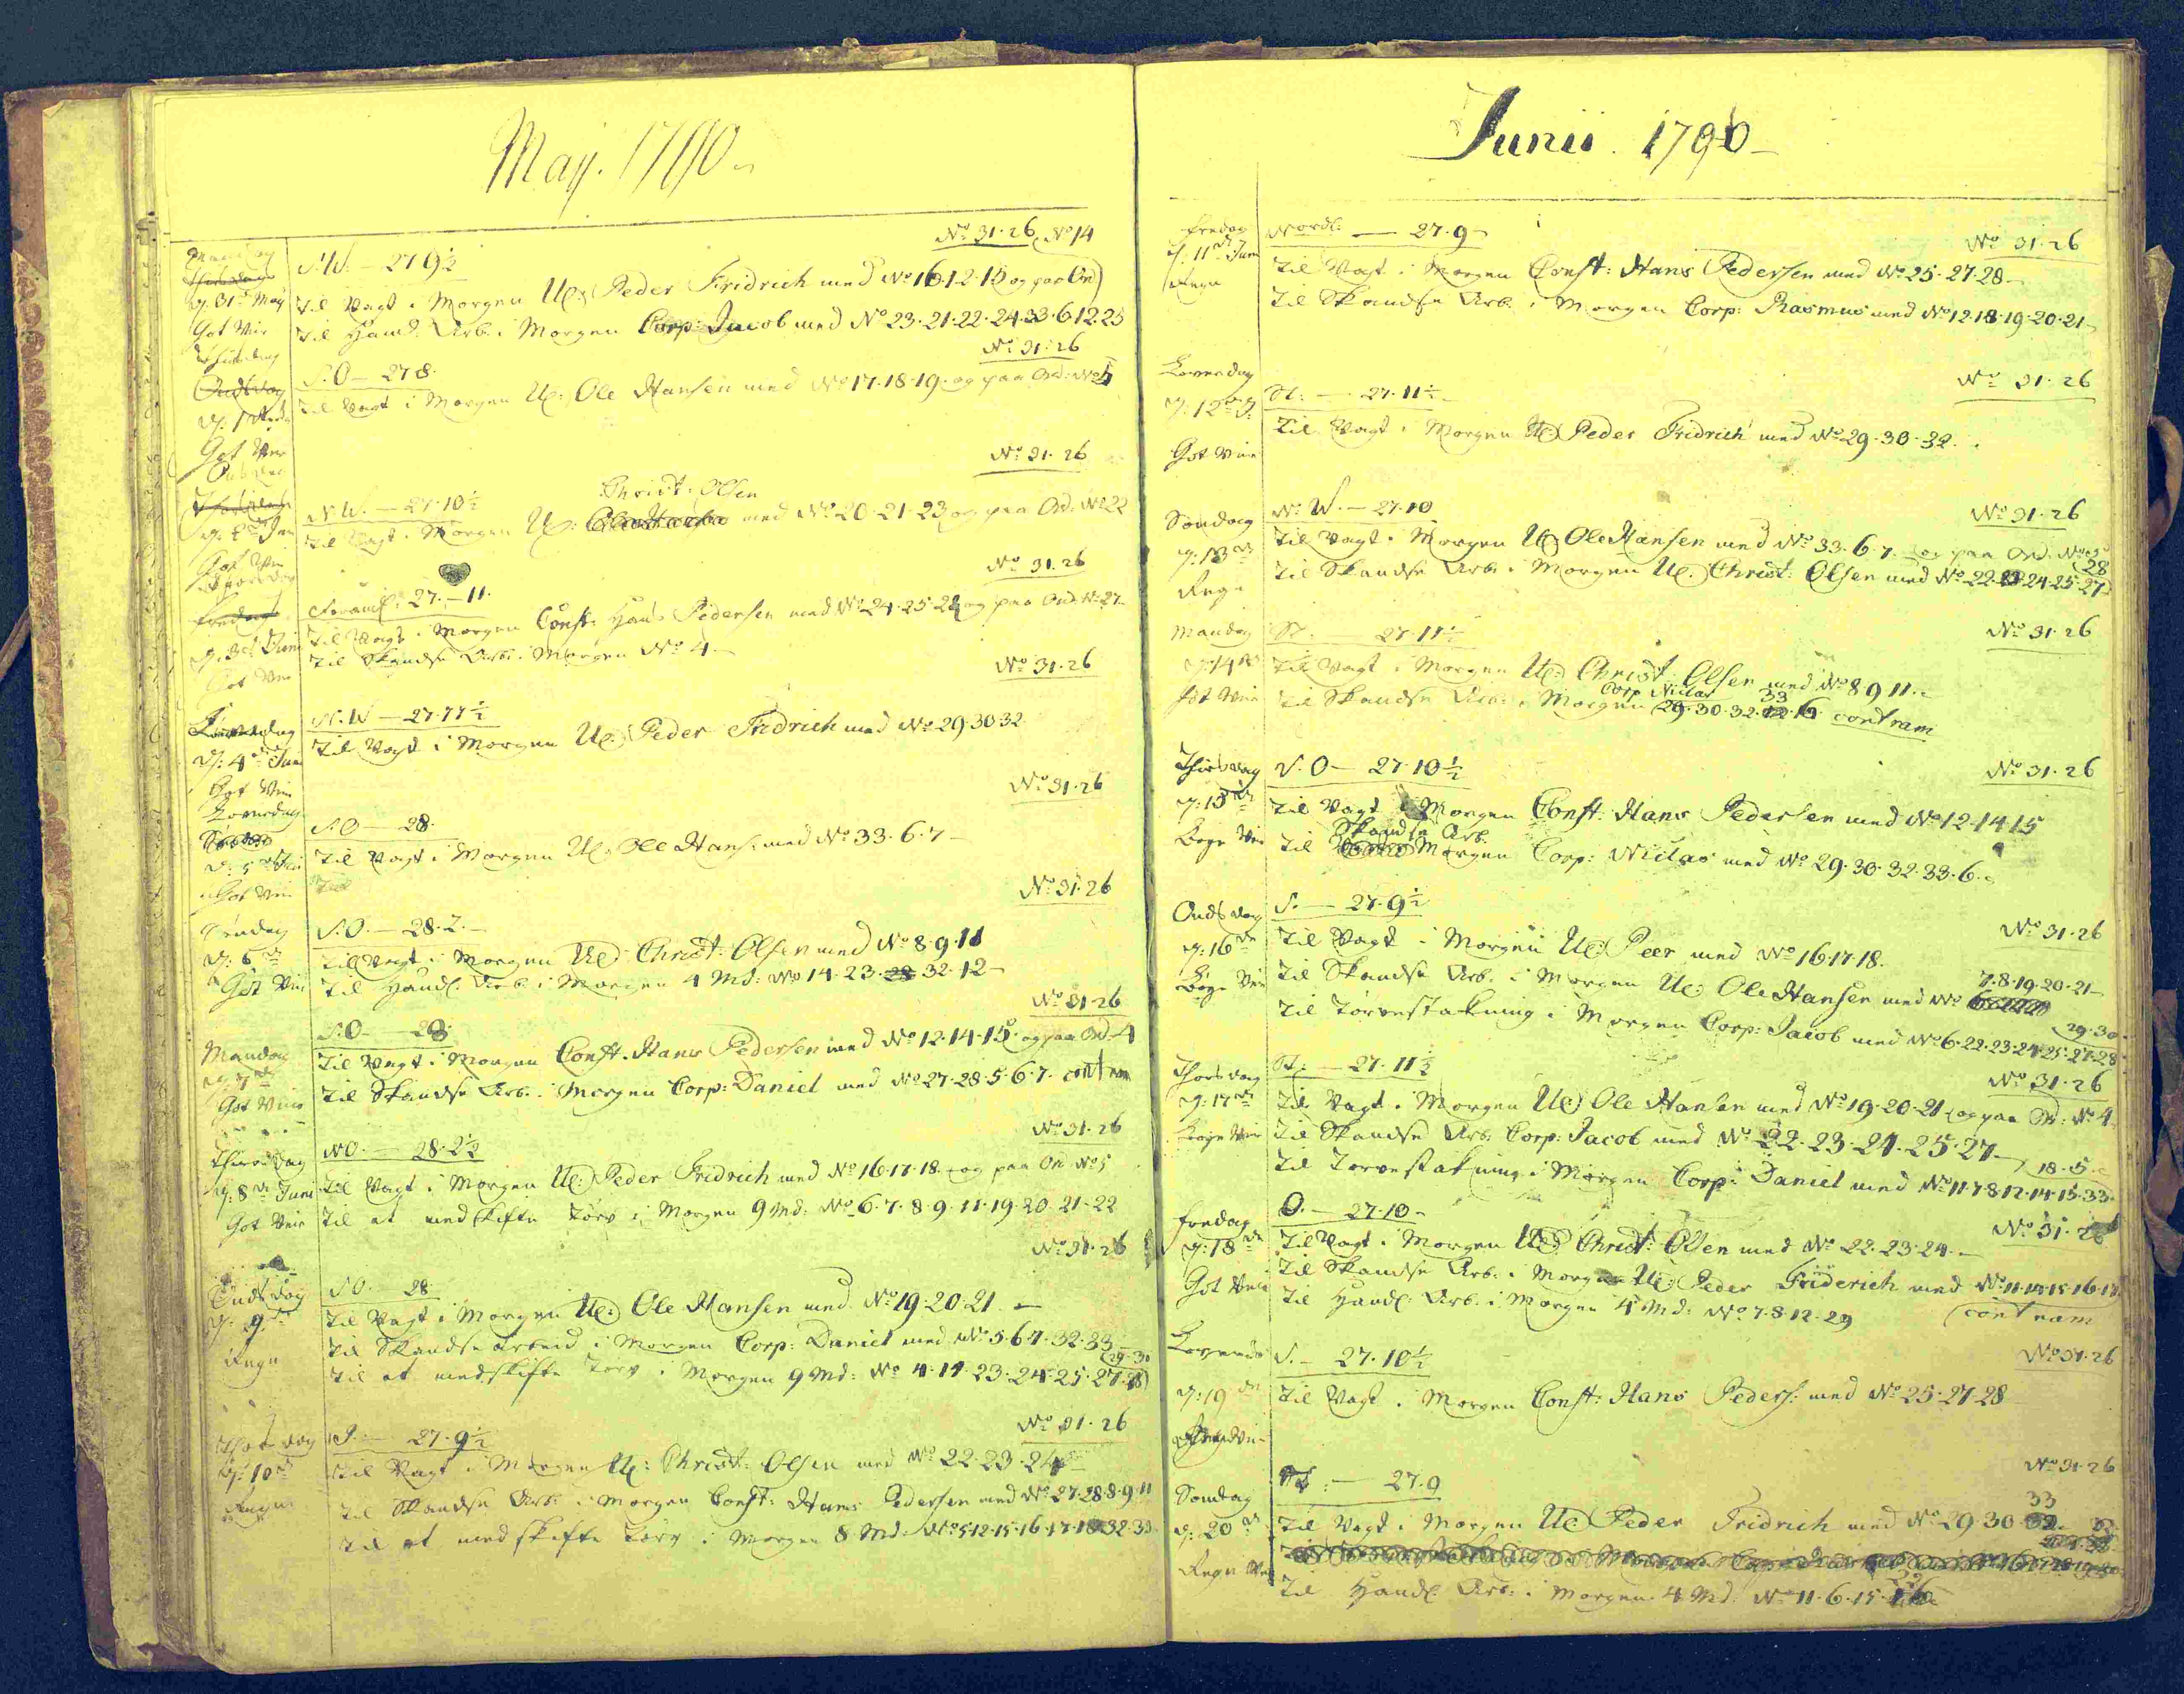 May. 1790
Mandag
Thirsdag
d: 31t May
Got Veir
S.W. — 27 9½
No 31. 26 No 14
Til Vagt i Morgen Uc: Peder Fridrich med No 16. 12. 15 og paa Ord
Til Handl. Arb. i Morgen Corp: Jacob med No 23. 21. 22. 24. 33. 6 12. 25
Thirsdag
Ondsdag
d: 1
Got Veir
S.O — 27 8.
No 31. 26
Til Vagt i Morgen Uc: Ole Hansen med No 17. 18. 19. og paa Ord: No 5
Onsdag
Thorsdag
Got Veir
N.W. — 27. 10½
No 31. 26
Christ: Olsen
Til Vagt i Morgen Uc: med No 20. 21. 23 og paa Ord. No 22
Thorsdag
Fredag
d: 3d Juni
Got Veir
27. — 11.
No 31. 26
Til Vagt i Morgen Const: Hans Pedersen med No 24. 25. 28 og paa Ord. No 27.
Til Skandse Arb. i Morgen No 4.
d: 4de Juni
Got Veir
N.W — 27. 11½
No 31. 26
Til Vagt i Morgen Uc: Peder Fridrich med No 29. 30 32
Loverdag
d: 5te Juni
Got Veir
S.O — 28.
No 31. 26
Til Vagt i Morgen Uc: Ole Hans: med No 33. 6. 7 —
Til
Søndag
d: 6te
Got Veir
S.O. — 28. 2. —
No 31. 26
Til Vagt i Morgen Uc: Christ: Olsen med No 8. 9. 11
Til Handl: Arb. i Morgen 4 Md: No 14. 23. 28. 32. 12 —
Mandag
d: 7de
Got Veir
S.O — 28.
No 31. 26
Til Vagt i Morgen Const. Hans Pedersen med No 12. 14. 15. og paa Ord. 4
Til Skandse Arb. i Morgen Corp: Daniel med No 27. 28. 5. 6. 7. contram
Thirsdag
d: 8de Juni
Got Veir
N.O. — 28. 2½
No 31. 26
Til Vagt i Morgen Uc: Peder Fridrich med No 16. 17. 18. og paa Ord. No 5
Til at nedskifte Törv i Morgen 9 Md: No 6. 7. 8. 9. 11. 19. 20 21. 22
Ondsdag
d: 9de
Regn
S.O. — 28
No 31. 26
Til Vagt i Morgen Uc: Ole Hansen med No 19. 20. 21. —
Til Skandse Arbeid i Morgen Corp: Daniel med No 5. 6. 7. 32. 33
29. 30
Til at nedskifte Törv i Morgen 9 Md: No 4. 14. 23. 24. 25. 27. 28
Thorsdag
d: 10de
Regn
S. — 27. 9½
No 31. 26
Til Vagt i Morgen Uc: Christ: Olsen med No 22. 23. 24
Til Skandse Arb. i Morgen Const: Hans Pedersen med No 27. 28. 8. 9 11
Til at nedskifte Törv i Morgen 8 Md: No 5. 12. 15. 16. 17. 18 32. 33
Junii. 1790
Fredag
d: 11te Juni
Regn
Nordl: — 27. 9
No 31. 26
Til Vagt i Morgen Const: Hans Pedersen med No 25. 27. 28
Til Skandse Arb. i Morgen Corp: Rasmus med No 12. 18. 19. 20. 21
Loverdag
d: 12te J:
Got Veir
St: — 27. 11½
No 31. 26
Til Vagt i Morgen Uc: Peder Fridrich med No 29. 30. 32.
Søndag
d: 13de
Regn
N.W. — 27. 10
No 31. 26
Til Vagt i Morgen Uc: Ole Hansen med No 33. 6. 7. og paa Ord. No
28
Til Skandse Arb. i Morgen Uc: Christ: Olsen med No 22. 23 24. 25. 27
Mandag
d: 14de
Got Veir
St: 27. 11½
No 31. 26
Til Vagt i Morgen Uc: Christ: Olsen med No 8 9 11.
Corp Niclas 33
Til Skandse Arb: i Morgen 29. 30. 32. 12. 6 contram
Thirsdag
d: 15de
Bøge Veir
S.O — 27. 10½
No 31. 26
Til Vagt i Morgen Const: Hans Pedersen med No 12. 14 15
Skandse Arb.
Til Morgen Corp: Niclas med No 29. 30. 32. 33. 6.
Ondsdag
d: 16de
Bøge Veir
S. — 27. 9½
No 31. 26
Til Vagt i Morgen Uc: Peer med No 16. 17. 18.
7. 8. 19. 20. 21
Til Skandse Arb. i Morgen Uc: Ole Hansen med No
29. 30
Til Törvestakning i Morgen Corp: Jacob med No 6. 22. 23. 24. 25. 27. 28
Thorsdag
d: 17de
Bøge Veir
St: — 27. 11½
No 31. 26
Til Vagt i Morgen Uc: Ole Hansen med No 19. 20. 21 og paa Ord: No 4
Til Skandse Arb. Corp: Jacob med No 22. 23. 24. 25. 27
18. 5.
Til Torvestakning i Morgen Corp: Daniel med No 11. 7. 8. 12. 14. 15. 33.
Fredag
d: 18de
Got Veir
O. — 27. 10
No 31. 26
Til Vagt i Morgen Uc: Christ: Olsen med No 22. 23. 24. —
Til Skandse Arb. i Morgen Uc: Peder Friderich med No 11. 14. 15. 16. 17
Til Handl: Arb. i Morgen 4 Md: No 7. 8. 12. 29 contram
d: 19de
S. — 27. 10½
No 31. 26
Til Vagt i Morgen Const: Hans Peders: med No 25. 27. 28
Søndag
d: 20de
Regn
St: — 27. 9
No 31. 26
33
Til Vagt i Morgen Uc: Peder Fridrich med No 29 30
Til Handl: Arb: i Morgen 4 Md. No 11. 6. 15.